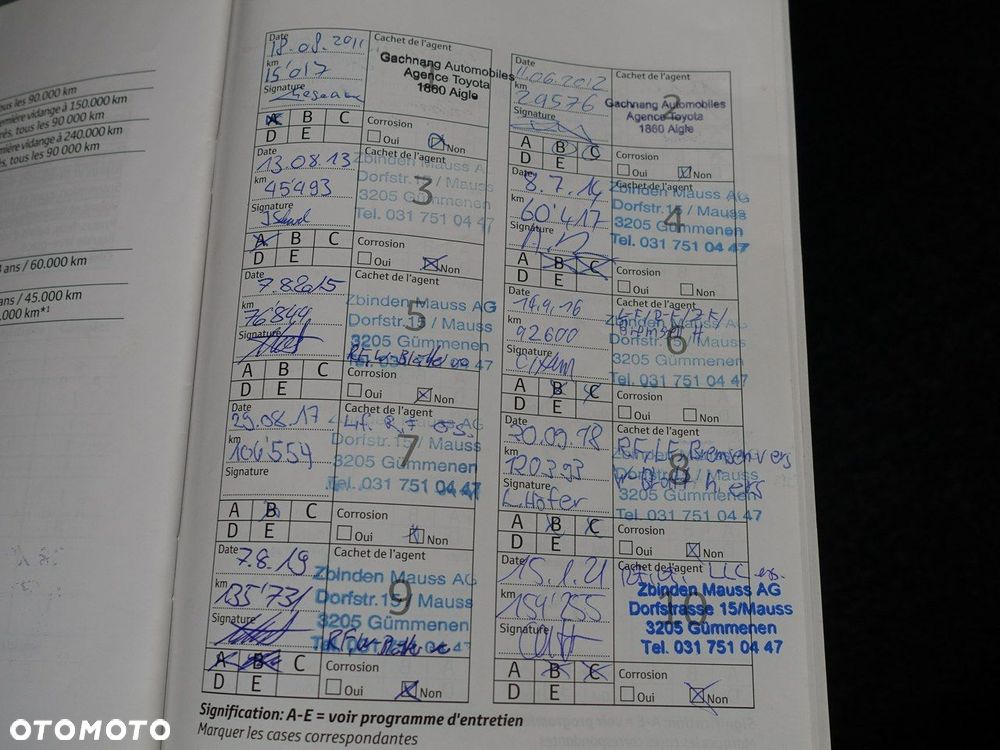 tous les 90.000 km
première vidange à 150.000 km
tous les 90 000 km
vidange à 240.000 km
tous les 90 000 km
ans / 60.000 km
ans / 45.000 km
.000 km*¹
Date
18.08.2011
km
15'017
Signature
Cachet de l'agent
1
Gachnang Automobiles
Agence Toyota
1860 Aigle
A B C
D E
Corrosion
Oui Non
Date
11.06.2012
km
29576
Signature
Cachet de l'agent
2
Gachnang Automobiles
Agence Toyota
1860 Aigle
A B C
D E
Corrosion
Oui Non
Date
13.08.13
km
45'493
Signature
Cachet de l'agent
3
Zbinden Mauss AG
Dorfstr. 15 / Mauss
3205 Gümmenen
Tel. 031 751 04 47
A B C
D E
Corrosion
Oui Non
Date
8.7.14
km
60'417
Signature
Cachet de l'agent
4
Zbinden Mauss AG
Dorfstr. 15 / Mauss
3205 Gümmenen
Tel. 031 751 04 47
A B C
D E
Corrosion
Oui Non
Date
7.8.2015
km
76'844
Signature
Cachet de l'agent
5
Zbinden Mauss AG
Dorfstr. 15 / Mauss
3205 Gümmenen
Tel. 031 751 04 47
A B C
D E
Corrosion
Oui Non
Date
km
92600
Signature
Cachet de l'agent
6
Zbinden Mauss AG
Dorfstr. 15 / Mauss
3205 Gümmenen
Tel. 031 751 04 47
A B C
D E
Corrosion
Oui Non
Date
29.08.17
km
106'554
Signature
Cachet de l'agent
7
Zbinden Mauss AG
Dorfstr. 15 / Mauss
3205 Gümmenen
Tel. 031 751 04 47
A B C
D E
Corrosion
Oui Non
Date
km
120393
Signature
L. Hofer
Cachet de l'agent
8
RF/LF/Bremsen v ers
3205 Gümmenen
Tel. 031 751 04 47
A B C
D E
Corrosion
Oui Non
Date
7.8.19
km
135'731
Signature
Cachet de l'agent
9
Zbinden Mauss AG
Dorfstr. 15 / Mauss
3205 Gümmenen
A B C
D E
Corrosion
Oui Non
Date
15.1.21
km
154'255
Signature
Cachet de l'agent
10
Zbinden Mauss AG
Dorfstrasse 15/Mauss
3205 Gümmenen
Tel. 031 751 04 47
A B C
D E
Corrosion
Oui Non
Signification: A-E = voir programme d'entretien
Marquer les cases correspondantes
OTOMOTO